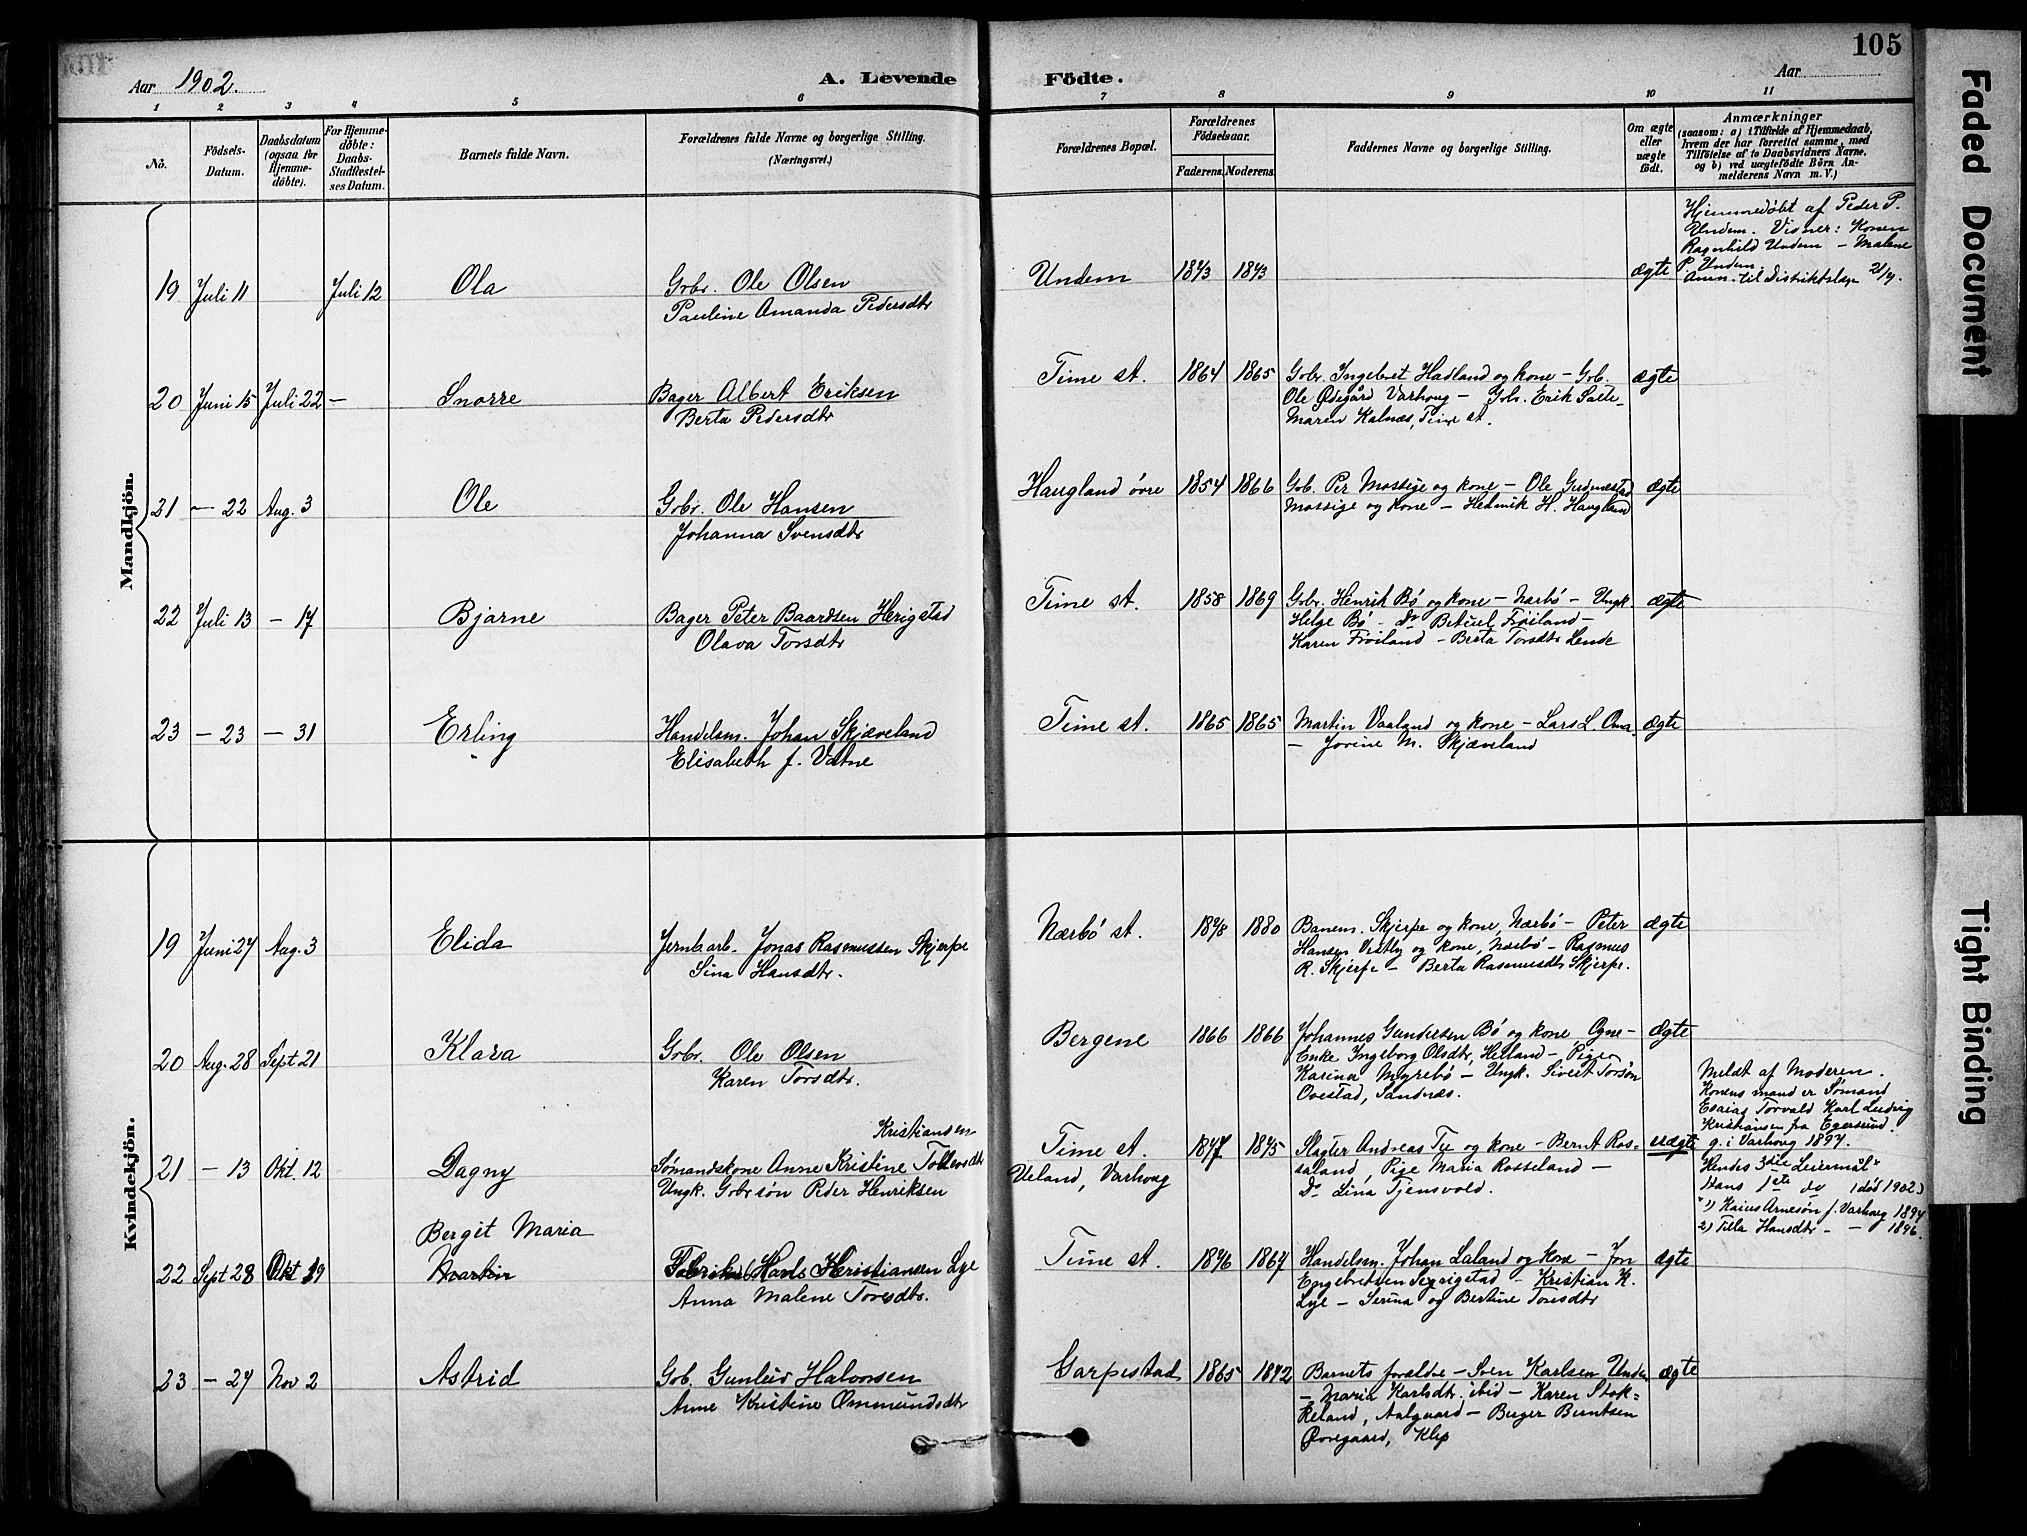 105
Aar 1902.
A. Levende Födte.
Aar
1 2 3 4 5 6 7 8 9 10 11
Nô.
Födsels-Datum.
Daabsdatum (ogsaa for Hjemme-döbte).
For Hjemme-döbte: Daabs-Stadfæstel-ses Datum.
Barnets fulde Navn.
Forældrenes fulde Navne og borgerlige Stilling. (Næringsvei.)
Forældrenes Bopæl.
Forældrenes Födselsaar.
Faderens. Moderens.
Faddernes Navne og borgerlige Stilling.
Om ægte eller uægte födt.
Anmærkninger
(saasom: a) i Tilfælde af Hjemmedaab, hvem der har forrettet samme, med Tilföielse af to Daabsvidners Navne, og b) ved uægtefödte Börn An-melderens Navn m. V.)
Mandkjön.
19 Juli 11 Juli 12 Ola
Gbr. Ole Olsen
Pauline Amanda Pedersdtr
Undem 1873 1873 ægte
Hjemmedöbt af Peder P.
Undem. Vidner: Konen
Ragnhild Undem - Malene
P. Undem
Anm. til Distriktslæge 2/7.
20 Juni 15 Juli 22 - Snorre
Bager Albert Eriksen
Berta Pedersdtr
Time st. 1864 1865 Gbr. Ingebret Hadland og kone - Gob. ægte
Ole Ödegård Varhoug - Gob. Erik Salte -
Maren Kalnæs, Time st.
21 - 22 Aug. 3 Ole
Gobr. Ole Hansen
Johanna Svensdtr
Haugland övre 1854 1866 Gob. Per Mossige og kone - Ole ægte
Mossige og kone - H. Haugland
22 Juli 13 - 17 Bjarne
Bager Peter Baardsen Herigstad
Olava Torsdtr
Time st. 1858 1869 Gobr. Henrik Bö og kone - Nærbö - Ungk. ægte
Helge Bö - Do Betuel Fröiland -
Karen Fröiland - Berta Torsdtr Lende
23 - 23 - 31 Erling
Handelsm. Johan Skjæveland
Elisabeth f. Vatne
Time st. 1865 1865 Martin Vaaland og kone - Lars L. ægte
- Jorine M. Skjæveland
Kvindekjön.
19 Juni 27 Aug. 3 Elida
Jernb.arb. Jonas Rasmussen Skjerpe
Sina Hansdtr.
Nærbö st. 1878 1880 Banem. Skjerpe og kone, Nærbö - Peter ægte
Hansen og kone, Nærbö - Rasmus
R. Skjerpe - Berta Rasmusdtr Skjerpe.
20 Aug. 28 Sept 21 Klara
Gobr. Ole Olsen
Karen Torsdtr.
Bergene 1866 1866 Johannes Gundersen Bö og kone, Ogne - ægte
Enke Ingeborg Olsdtr, Helland - Pige
Karina Myrebö - Ungk. Sivert Torsön
Ovestad, Sandnæs.
21 - 13 Okt. 12 Dagny
Kristiansen
Sömandskone Anne Kristine Tollevsdtr
Ungk. Gobrsön Peder Henriksen
Time st. 1877 1875 Slagter Andreas Tu og kone - Bernt Ros- uægte
Ueland, Varhoug
saland, Pige Maria Rosseland -
Do Lina Tjensvold.
Meldt af Moderen.
Konens mand er Sömand
Esaias Torvald Karl Ludvig
Kristiansen fra Egersund.
g. i Varhoug 1897.
Hendes 3die Leiermål
Hans 1ste do (död 1902)
1) Kaius Arnesön f. Varhoug 1894
2) Tilla Hansdtr - - 1896.
22 Sept 28 Okt 19 Bergit Maria
Fabrikarb. Karl Kristiansen Lye
Anna Malene Toresdtr.
Time st. 1876 1867 Handelsm. Johan Laland og kone - Jon ægte
Engebretsen - Kristian K.
Lye - Serina og Bertine Toresdtr
23 - 27 Nov 2 Astrid
Gob. Gunleiv Halvorsen
Anne Kristine Ommundsdtr
Garpestad 1865 1872 Barnets forældre - Sven Karlsen Undem ægte
- Maria Karlsdtr. ibid - Karen Stok-
keland, Aalgaard - Berger Berntsen
Övregaard, Klep
Faded Document
Tight Binding